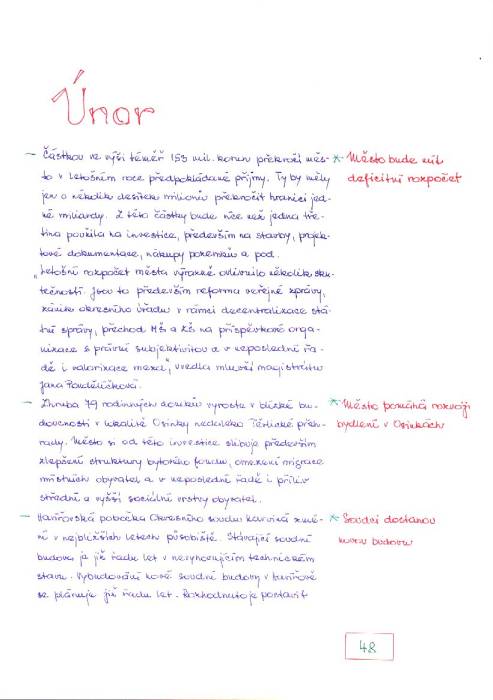 Únor
– Částkou ve výši téměř 153 mil. korun překročí měs-
to v letošním roce předpokládané příjmy. Ty by měly
jen o několik desítek milionů překročit hranici jed-
né miliardy. Z této částky bude více než jedna tře-
tina použita na investice, především na stavby, projek-
tové dokumentace, nákupy pozemků a pod.
„Letošní rozpočet města výrazně ovlivnilo několik sku-
tečností. Jsou to především reforma veřejné zprávy,
zánik okresního úřadu v rámci decentralizace stá-
tní správy, přechod MŠ a ZŠ na příspěvkové orga-
nizace s právní subjektivitou a v neposlední řa-
dě i valorizace mezd," uvedla mluvčí magistrátu
Jana
* Město bude mít
deficitní rozpočet
– Zhruba 79 rodinných domků vyroste v blízké bu-
doucnosti v lokalitě Osinky nedaleko Těrlické přeh-
rady. Město si od této investice slibuje především
zlepšení struktury bytového fondu, omezení migrace
místních obyvatel a v neposlední řadě i příliv
střední a vyšší sociální vrstvy obyvatel.
* Město pomáhá rozvoji
bydlení v Osinkách
– Havířovská pobočka Okresního soudu Karviná změ-
ní v nejbližších letech působiště. Stávající soudní
budova je již řadu let v nevyhovujícím technickém
stavu. Vybudování nové soudní budovy v Havířově
se plánuje již řadu let. Rozhodnuto je postavit
* Soudci dostanou
novou budovu
48